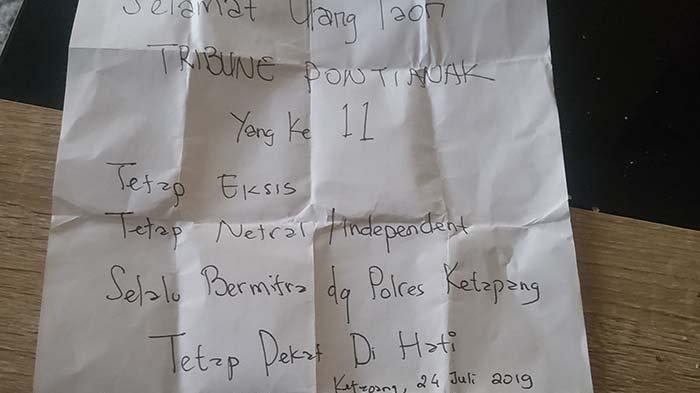 Selamat Ulang Taon
TRIBUNE PONTINAK
Yang Ke 11
Tetap Eksis
Tetap Netral/Independent
Selalu Bermitra dg Polres Ketapang
Tetap Dekat Di Hati
Ketapang, 24 Juli 2019